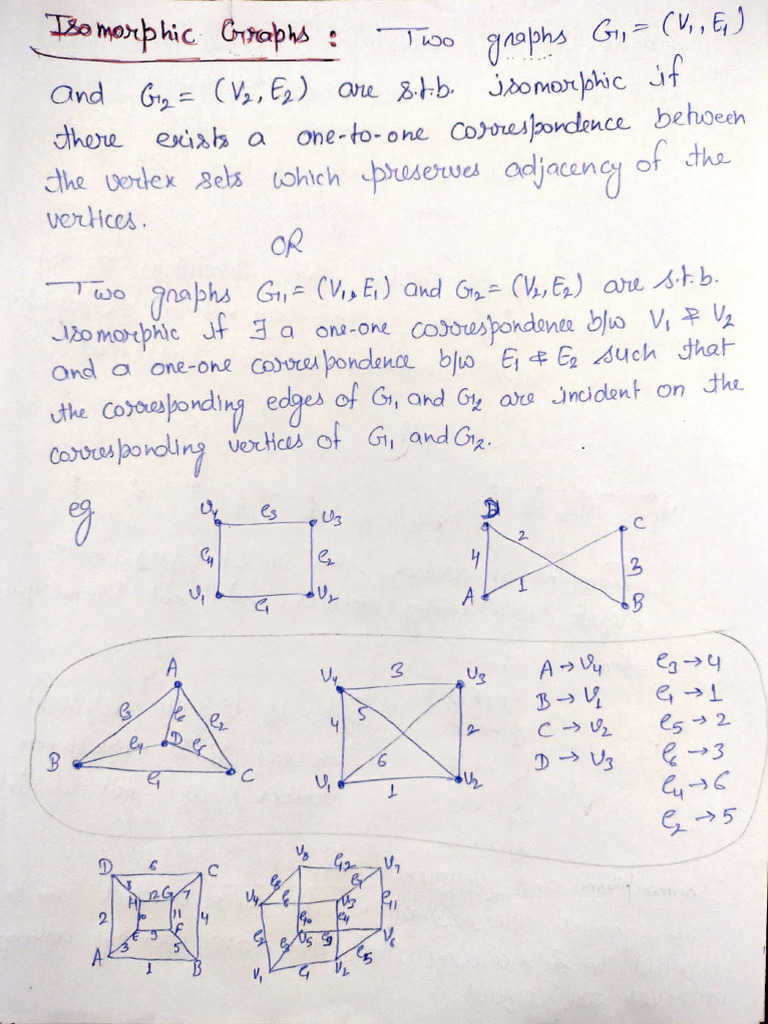 Isomorphic Graphs : Two graphs G₁ = (V₁, E₁)
and G₂ = (V₂, E₂) are s.t.b. isomorphic if
there exists a one-to-one correspondence between
the vertex sets which preserves adjacency of the
vertices.
OR
Two graphs G₁ = (V₁, E₁) and G₂ = (V₂, E₂) are s.t.b.
isomorphic if ∃ a one-one correspondence b/w V₁ & V₂
and a one-one correspondence b/w E₁ & E₂ such that
the corresponding edges of G₁ and G₂ are incident on the
corresponding vertices of G₁ and G₂.
eg
v₄ e₃ v₃
e₄ e₂
v₁ e₁ v₂
D 2 C
4 3
A 1 B
A
e₃ e₆ e₂
e₄ D e₅
B e₁ C
v₄ 3 v₃
4 5 2
6
v₁ 1 v₂
A → v₄ e₃ → 4
B → v₁ e₁ → 1
C → v₂ e₅ → 2
D → v₃ e₆ → 3
e₄ → 6
e₂ → 5
D 6 C
8 H 12 G 7
2 10 11 4
3 E 9 F 5
A 1 B
v₈ e₁₂ v₇
v₄ e₈ e₆ v₃ e₇
e₂ e₁₀ e₄ e₁₁
e₃ v₅ e₉ v₆
v₁ e₁ v₂ e₅